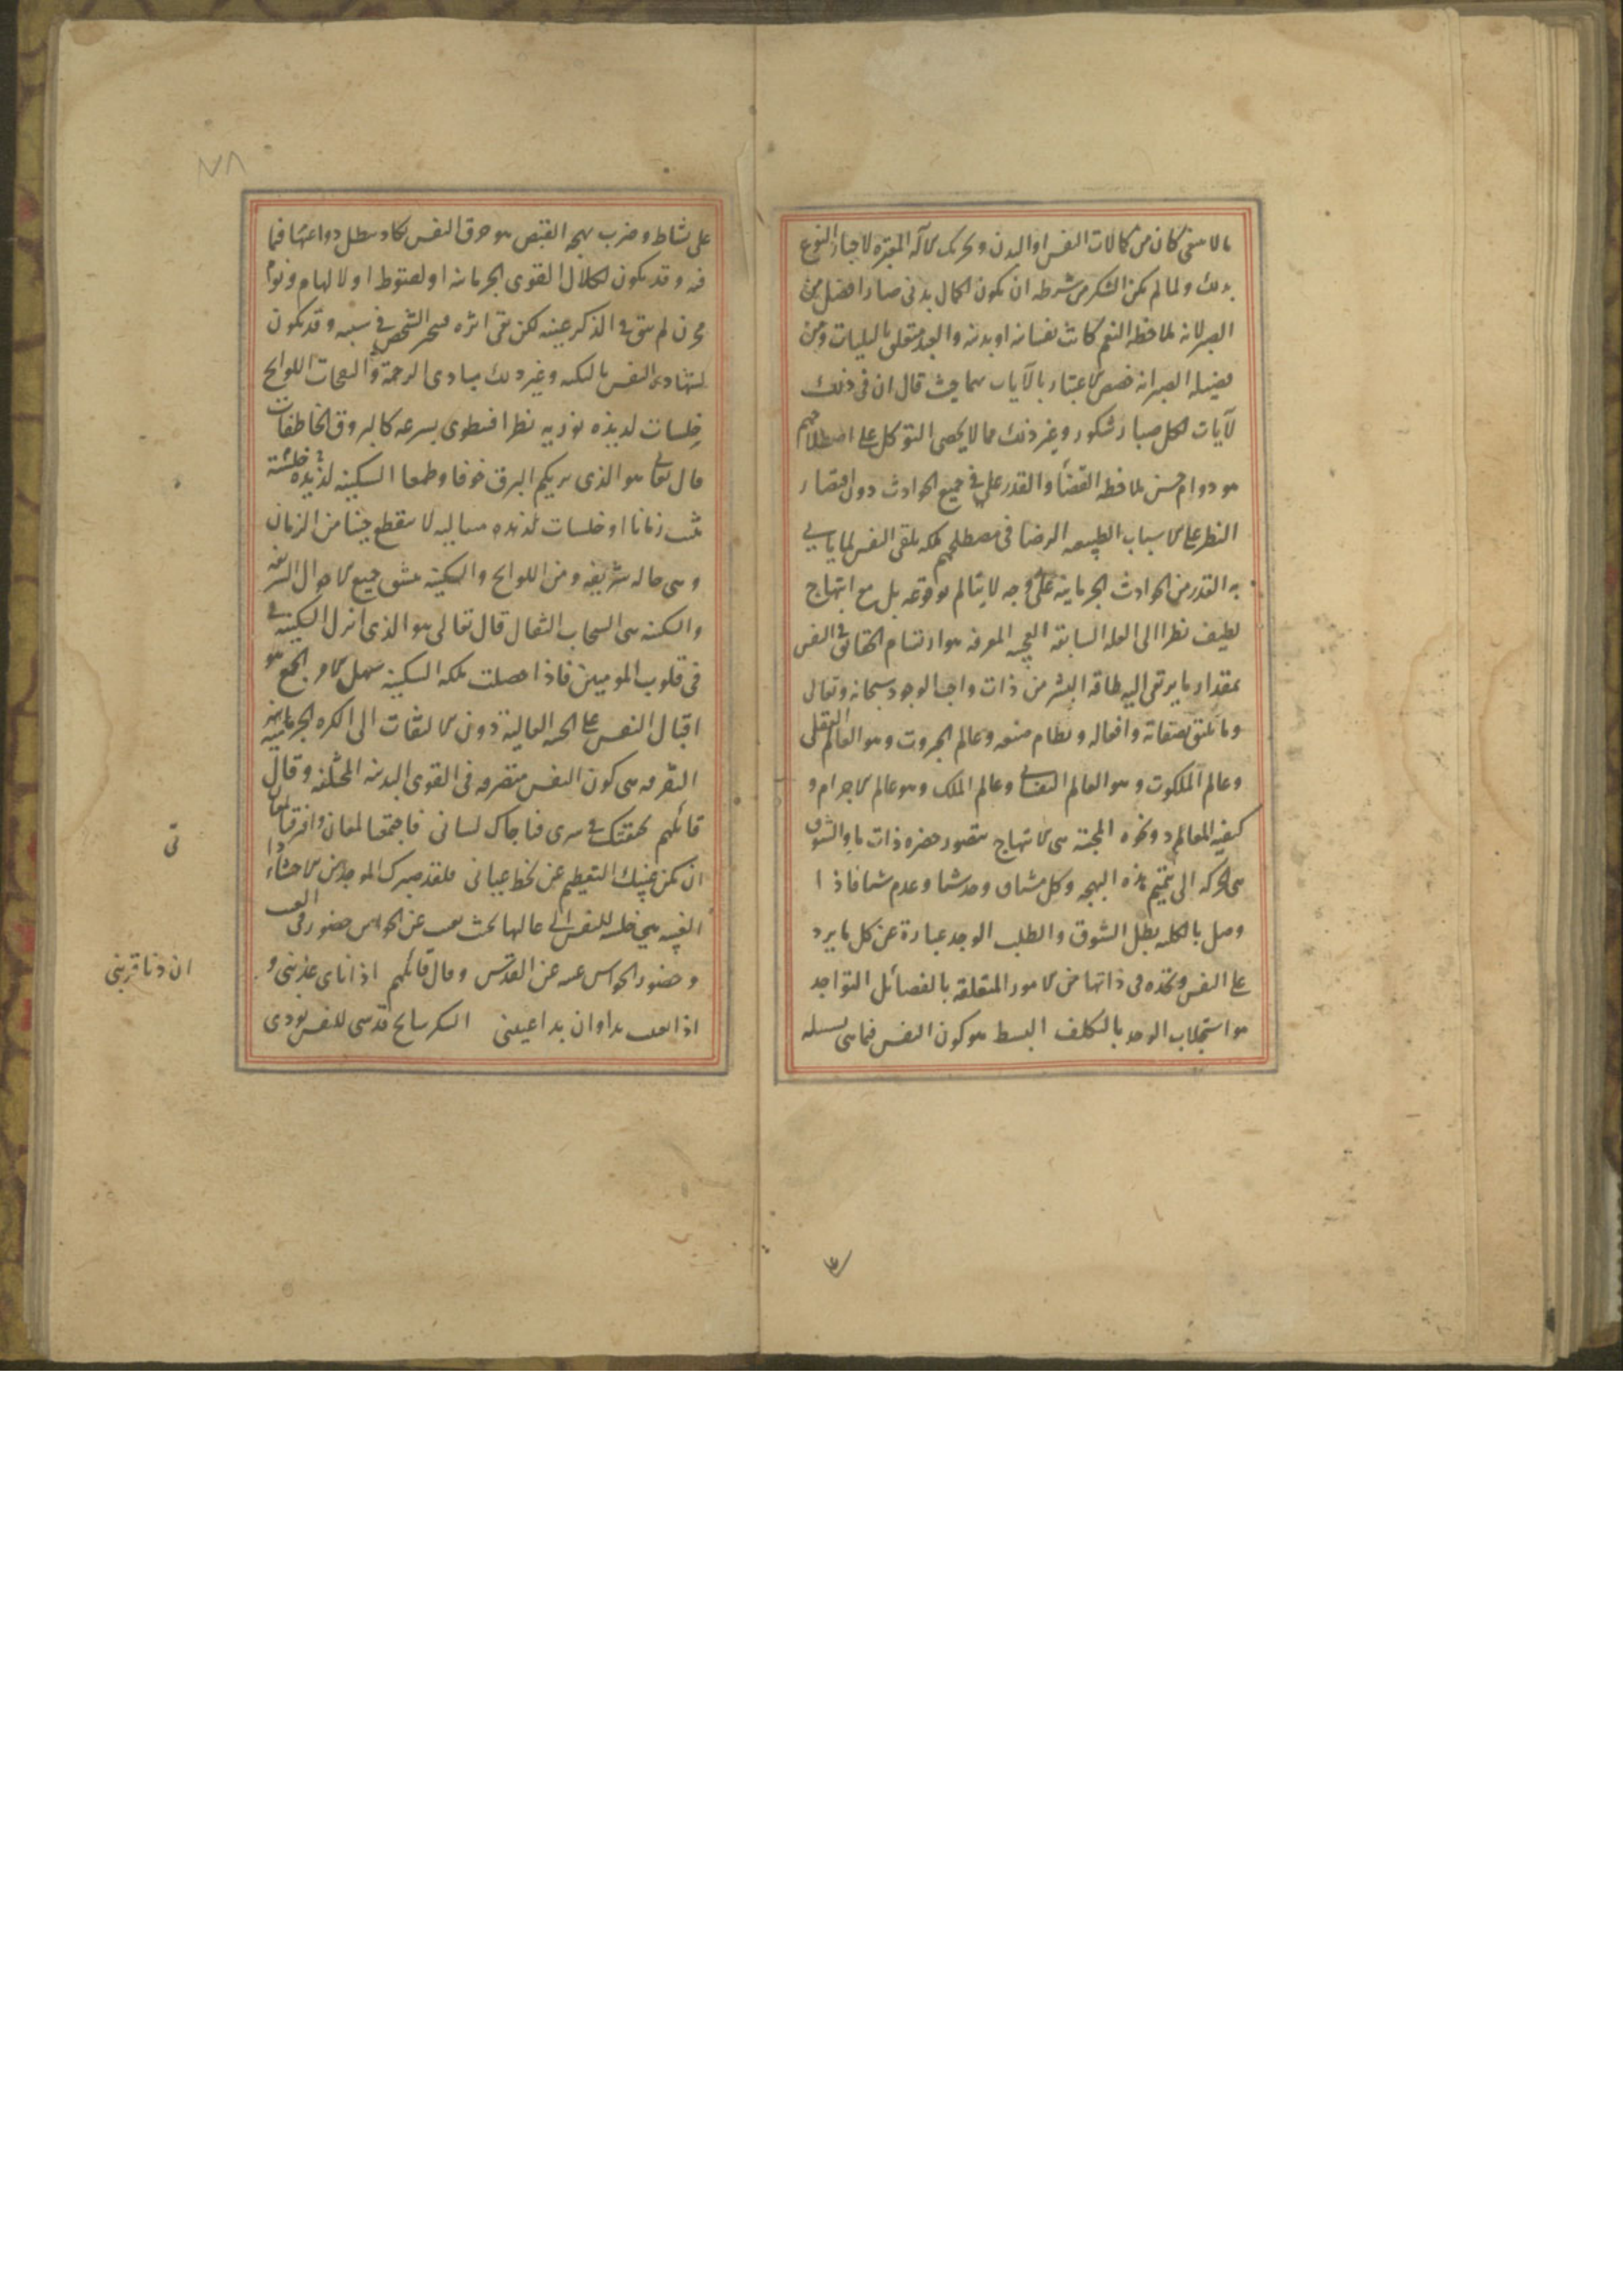 مالا ىنبغى كان من كمالات النفس او البدن وتحريك الآلة لاخبار النوع
بذلك ولما لم يكن الشكر من شرطه ان يكون الكمال بدنى صار افضل من
الصبر لانه ملاحظة النعم كانت نفسانيه او بدنيه والصبر متعلق بالبليات ومن
فضيلة الصبر انه خصص الاعتبار بالآيات بهما حيث قال ان فى ذلك
لآيات لكل صبار شكور وغير ذلك مما لا يحصى التوكل على اصطلاحهم
هو دوام حسن ملاحظة القضاء والقدر فى جميع الحوادث دون اقتصار
النظر على الاسباب الطبيعيه الرضا فى مصطلحهم ملكه تلقى النفس لما ياتى
به القدر من الحوادث الجرمانية على وجه لا يتالم بوقوعه بل مع ابتهاج
لطيف نظرا الى العله السابقه العجيبه المعرفه هو ارتسام الحقائق فى النفس
بمقدار ما يرتقى اليه طاقة البشر من ذات واجب الوجود سبحانه وتعالى
وما يليق بصفاته وافعاله ونظام صنعه وعالم الجبروت وهو العالم العقلى
وعالم الملكوت وهو العالم النفسانى وعالم الملك وهو عالم الاجرام و
كيفية المعالم ونحوه المحبة هى الابتهاج بتصور حضره ذات ما والشوق
هى الحركه الى تتميم هذه البهجه وكل مشتاق وجد شيئا وعدم شيئا فاذا
وصل بالكليه بطل الشوق والطلب الوجد عبارة عن كل ما يرد
على النفس وتجده فى ذاتها من الامور المتعلقه بالفضائل التواجد
هو استجلاب الوجد بالتكلف البسط هو كون النفس فيما هى بسبيله
على نشاط وضرب بهجه القبض هو حرق النفس يكاد يبطل دواعيها فيما
فيه وقد يكون لكلال القوى الجرمانيه او لقنوط او لالهام ونوا
محزن لم يبق فى الذكر عينه لكن بقى اثره فتحير الشخص فى سببه وقد يكون
لشهادة النفس بالنكبه وغير ذلك مبادى الرحمة والنفحات اللوائح
خلسات لذيذه نوريه نظرا فتطوى بسرعه كالبروق الخاطفات
قال تعالى هو الذى يريكم البرق خوفا وطمعا السكينه خلسة لذيذه
تثبت زمانا او خلسات لذيذه متتاليه لا ينقطع حينا من الزمان
وهى حاله شريفه ومن اللوائح والسكينه ينشق جميع الاحوال الشريفه
والسكينه هى السحاب الثقال قال تعالى هو الذى انزل السكينة
فى قلوب المومنين فاذا حصلت ملكه السكينه سهل الامر الجمع هو
اقبال النفس على الجهة العالية دون الالتفات الى الكره الجرمانيه
التفرقه هى كون النفس متصرفه فى القوى البدنيه المختلفه وقال
قائلهم تحققتك فى سرى فناجاك لسانى فاجتمعنا لمعان وافترقنا لمعان
ان يكن غيبك التعظيم عن لحظ عيانى فلقد صيرك الوجد من الاحشاء دا
الغيبه هى خلسه للنفس الى عالمها بحيث يغيب عن الحواس حضور فى الغيب
وحضور الحواس غيبه عن القدس وقال قائلهم اذا ناى عذبنى و
اذا تغيب بدا وان بدا غيبنى السكر سانح قدسى للنفس يودى
نى
ان دنا قربنى